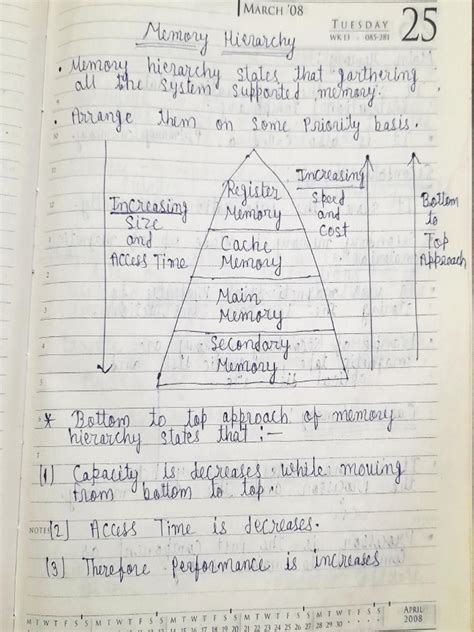 MARCH '08
TUESDAY
WK 13 · 085-281
25
Memory Hierarchy
• Memory hierarchy states that garthering
all the system supported memory.
• Arrange them on some Priority basis.
Increasing
Size
and
Access Time
Register
Memory
Cache
Memory
Main
Memory
Secondary
Memory
Increasing
Speed
and
Cost
Bottom
to
Top
Approach
* Bottom to top approach of memory
hierarchy states that :-
[1] Capacity is decreases while moving
from bottom to top.
NOTES
[2] Access Time is decreases.
[3] Therefore Performance is increases
M T W T F S S M T W T F S S M T W T F S S M T W T F S S M T W T F S S
APRIL
2008